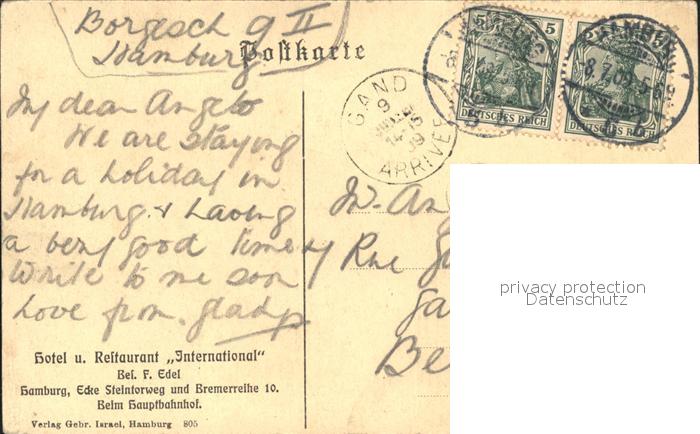 Borgesch 9 II
Hamburg
Postkarte
My dear Angelo
We are staying
for a holiday in
Hamburg & having
a very good time
Write to me soon
Love from Gladys
Hotel u. Restaurant „International"
Bes. F. Edel
Hamburg, Ecke Steintorweg und Bremerreihe 10.
Beim Hauptbahnhof.
Verlag Gebr. Israel, Hamburg 805
GAND
9
14-15
09
ARRIVEE
5 5
DEUTSCHES REICH
DEUTSCHES REICH
HAMBURG
8.7.09.5-6
Mr. An
Rue
Ga
Be
privacy protection
Datenschutz